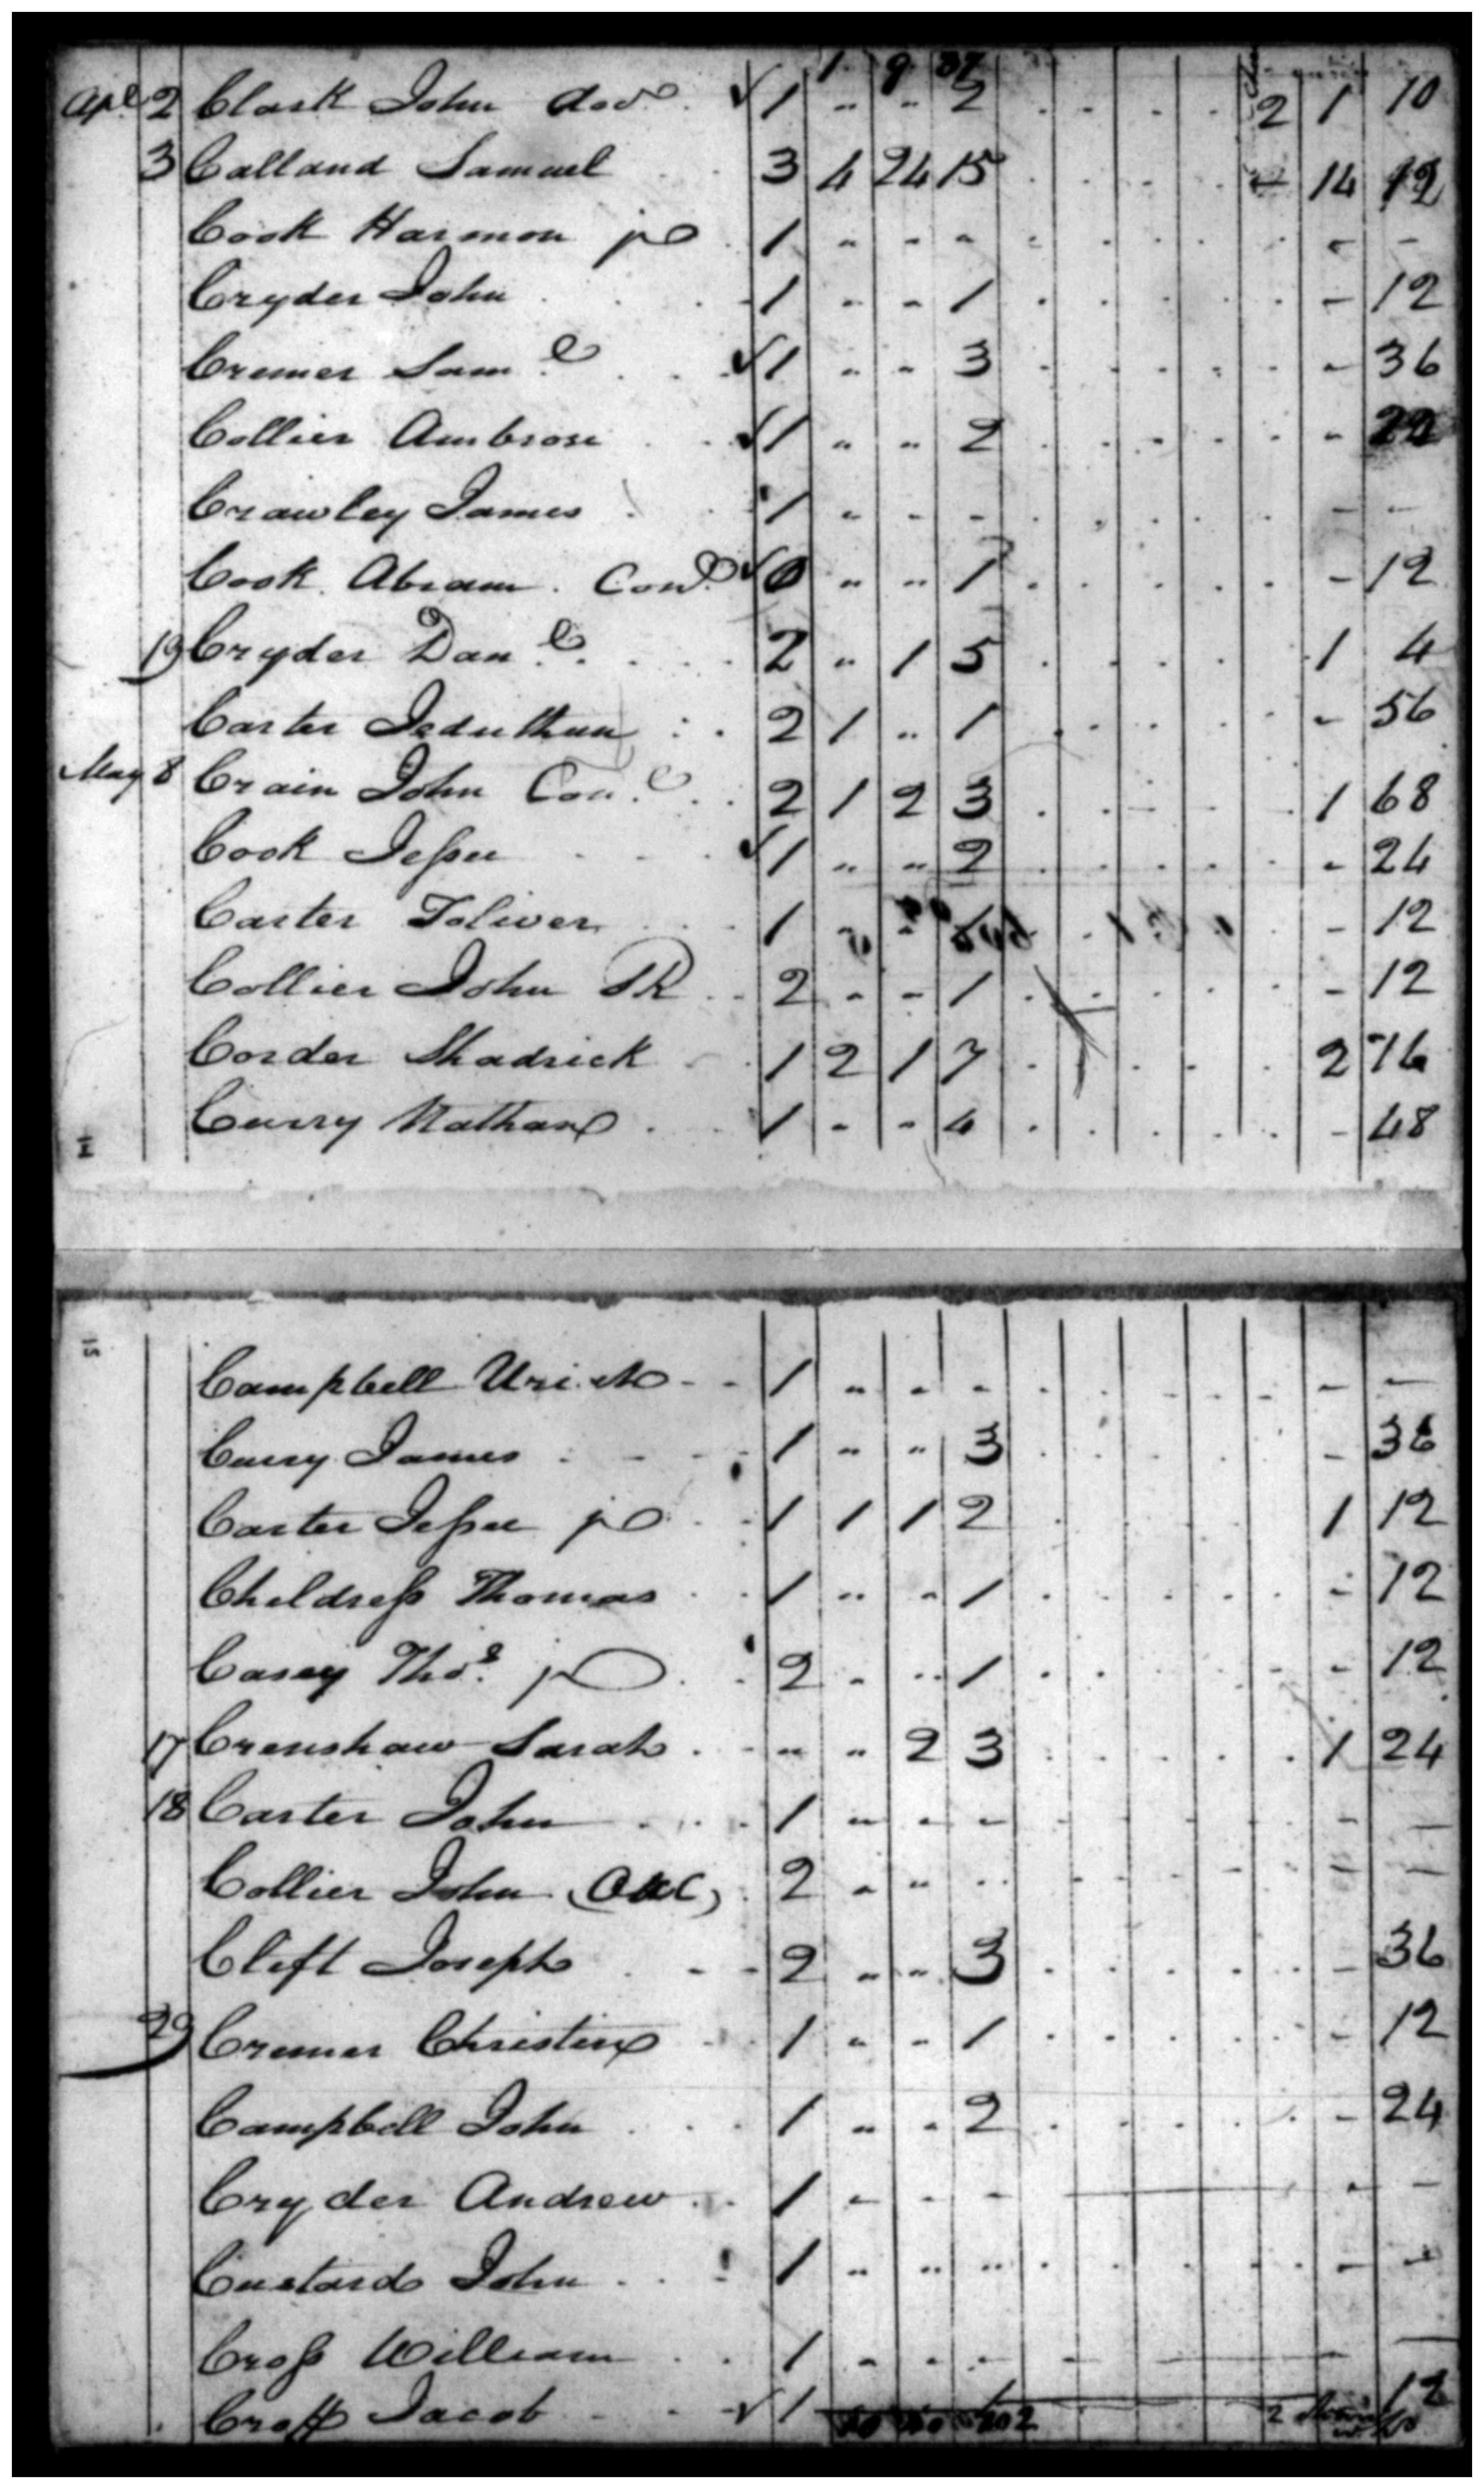 1 9 37
Apl 2 Clark John dod. ✓ 1 " " 2 . . . . 2 1 10
3 Calland Samuel 3 4 24 15 . . . . 14 12
Cook Harmon jr 1 - - - . . . . . - -
Cryder John 1 - - 1 . . . . . - 12
Cremer Saml ✓ 1 - - 3 . . . . . - 36
Collier Ambrose ✓ 1 " " 2 . . . . . -
Crawley James 1 - - - . . . . . - -
Cook Abram Cond ✓ 0 " " 1 . . . . . - 12
19 Cryder Danl 2 " 1 5 . . . . 1 4
Carter Jeduthun 2 1 " 1 . . . . . - 56
May 8 Crain John Conl 2 1 2 3 . . . . 1 68
Cook Jesse ✓ 1 " " 2 . . . . . - 24
Carter Toliver 1 - - . - 12
Collier John PR 2 - - 1 . . . . . - 12
Corder Shadrick 1 2 1 7 . . . . 2 76
Curry Nathan 1 - - 4 . . . . . - 48
Campbell Uriah 1 - - - . . . . . - -
Curry James 1 " " 3 . . . . . - 36
Carter Jesse jr 1 1 1 2 . . . . 1 12
Childress Thomas 1 " - 1 . . . . . - 12
Casey Thos jr 2 - " 1 . . . . . - 12
17 Crenshaw Sarah " " 2 3 . . . . . 1 24
18 Carter John 1 - - - . . . . . - -
Collier John 2 - " - . . . . . - -
Clift Joseph 2 - - 3 . . . . . - 36
29 Cremer Christian 1 - - 1 . . . . . - 12
Campbell John 1 - - 2 . . . . . - 24
Cryder Andrew 1 - - - - -
Custard John 1 " " " . . . . . - -
Cross William 1 - - - -
Croff Jacob ✓ 1 1 12
2